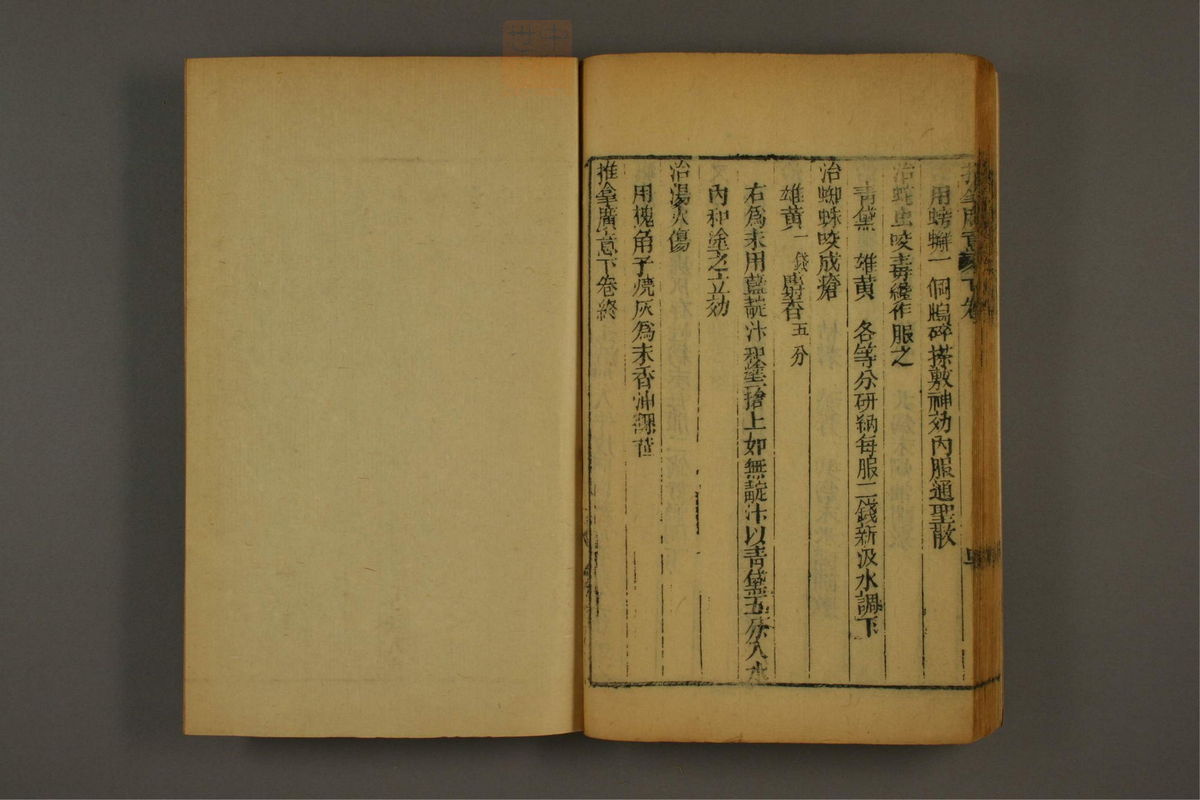 推拿廣意 下卷
用螃蠏一個搗碎搽敷神効内服通聖散
治蛇虫咬毒纔作服之
青黛 雄黄 各等分研納每服二錢新汲水調下
治蜘蛛咬成瘡
雄黄一錢 麝香五分
右爲末用藍靛汁和塗瘡上如無靛汁以青黛五分入水
内和塗之立効
治湯火傷
用槐角子燒灰爲末香油調搽
推拿廣意下卷終